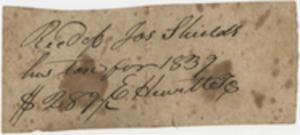 Recd of Jos Shields
his tax for 1839
$2.89 E Hewitt